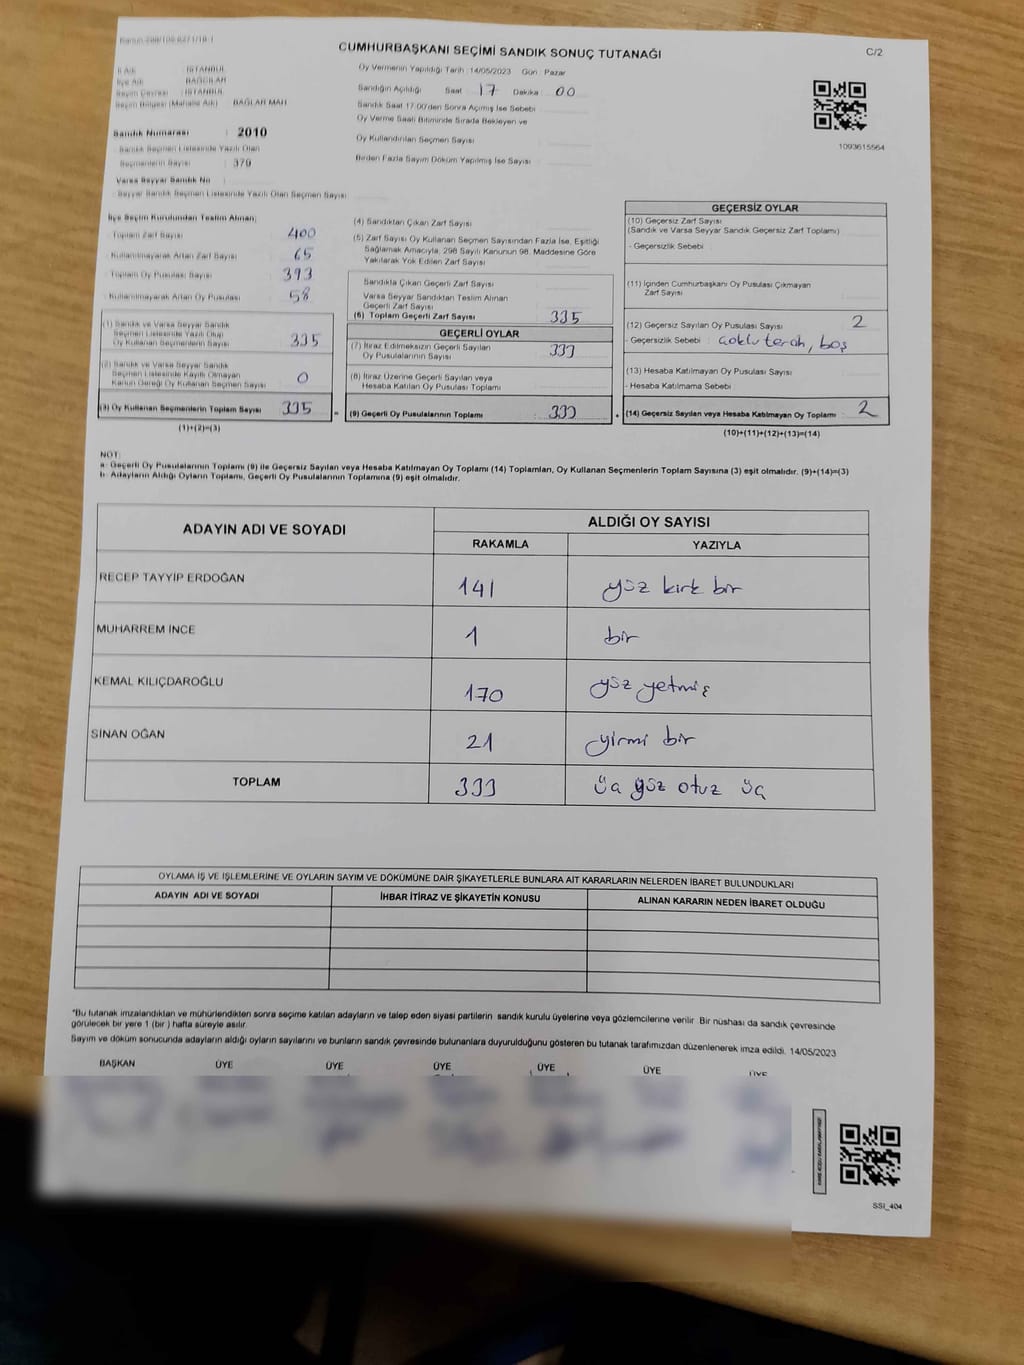 Kanun:298/105-6271/18-1
CUMHURBAŞKANI SEÇİMİ SANDIK SONUÇ TUTANAĞI
C/2
İl Adı : İSTANBUL
İlçe Adı : BAĞCILAR
Seçim Çevresi : İSTANBUL
Seçim Bölgesi (Mahalle Adı) : BAĞLAR MAH
Sandık Numarası : 2010
Sandık Seçmen Listesinde Yazılı Olan
Seçmenlerin Sayısı : 370
Varsa Seyyar Sandık No
Seyyar Sandık Seçmen Listesinde Yazılı Olan Seçmen Sayısı
Oy Vermenin Yapıldığı Tarih :14/05/2023 Gün : Pazar
Sandığın Açıldığı Saat 17 Dakika : 00
Sandık Saat 17:00'den Sonra Açımış İse Sebebi
Oy Verme Saati Bitiminde Sırada Bekleyen ve
Oy Kullandırılan Seçmen Sayısı
Birden Fazla Sayım Döküm Yapılmış İse Sayısı
1093615564
İlçe Seçim Kurulundan Teslim Alınan;
Toplam Zarf Sayısı 400
Kullanılmayarak Artan Zarf Sayısı 65
Toplam Oy Pusulası Sayısı 393
Kullanılmayarak Artan Oy Pusulası 58
(1) Sandık ve Varsa Seyyar Sandık
Seçmen Listesinde Yazılı Olup
Oy Kullanan Seçmenlerin Sayısı 335
(2) Sandık ve Varsa Seyyar Sandık
Seçmen Listesinde Kayıtlı Olmayan
Kanun Gereği Oy Kullanan Seçmen Sayısı 0
(3) Oy Kullanan Seçmenlerin Toplam Sayısı 335
(1)+(2)=(3)
(4) Sandıktan Çıkan Zarf Sayısı
(5) Zarf Sayısı Oy Kullanan Seçmen Sayısından Fazla İse, Eşitliği
Sağlamak Amacıyla, 298 Sayılı Kanunun 98. Maddesine Göre
Yakılarak Yok Edilen Zarf Sayısı
Sandıkta Çıkan Geçerli Zarf Sayısı
Varsa Seyyar Sandıktan Teslim Alınan
Geçerli Zarf Sayısı
(6) Toplam Geçerli Zarf Sayısı 335
GEÇERLİ OYLAR
(7) İtiraz Edilmeksizin Geçerli Sayılan
Oy Pusulalarının Sayısı 333
(8) İtiraz Üzerine Geçerli Sayılan veya
Hesaba Katılan Oy Pusulası Toplamı
(9) Geçerli Oy Pusulalarının Toplamı : 333
GEÇERSİZ OYLAR
(10) Geçersiz Zarf Sayısı
(Sandık ve Varsa Seyyar Sandık Geçersiz Zarf Toplamı)
- Geçersizlik Sebebi
(11) İçinden Cumhurbaşkanı Oy Pusulası Çıkmayan
Zarf Sayısı
(12) Geçersiz Sayılan Oy Pusulası Sayısı 2
- Geçersizlik Sebebi : çoklu tercih, boş
(13) Hesaba Katılmayan Oy Pusulası Sayısı
- Hesaba Katılmama Sebebi
(14) Geçersiz Sayılan veya Hesaba Katılmayan Oy Toplamı : 2
(10)+(11)+(12)+(13)=(14)
NOT:
a- Geçerli Oy Pusulalarının Toplamı (9) ile Geçersiz Sayılan veya Hesaba Katılmayan Oy Toplamı (14) Toplamları, Oy Kullanan Seçmenlerin Toplam Sayısına (3) eşit olmalıdır. (9)+(14)=(3)
b- Adayların Aldığı Oyların Toplamı, Geçerli Oy Pusulalarının Toplamına (9) eşit olmalıdır.
ADAYIN ADI VE SOYADI
ALDIĞI OY SAYISI
RAKAMLA YAZIYLA
RECEP TAYYİP ERDOĞAN 141 yüz kırk bir
MUHARREM İNCE 1 bir
KEMAL KILIÇDAROĞLU 170 yüz yetmiş
SİNAN OĞAN 21 yirmi bir
TOPLAM 333 üç yüz otuz üç
OYLAMA İŞ VE İŞLEMLERİNE VE OYLARIN SAYIM VE DÖKÜMÜNE DAİR ŞİKAYETLERLE BUNLARA AİT KARARLARIN NELERDEN İBARET BULUNDUKLARI
ADAYIN ADI VE SOYADI İHBAR İTİRAZ VE ŞİKAYETİN KONUSU ALINAN KARARIN NEDEN İBARET OLDUĞU
*Bu tutanak imzalandıktan ve mühürlendikten sonra seçime katılan adayların ve talep eden siyasi partilerin sandık kurulu üyelerine veya gözlemcilerine verilir. Bir nüshası da sandık çevresinde
görülecek bir yere 1 (bir ) hafta süreyle asılır.
Sayım ve döküm sonucunda adayların aldığı oyların sayılarını ve bunların sandık çevresinde bulunanlara duyurulduğunu gösteren bu tutanak tarafımızdan düzenlenerek imza edildi. 14/05/2023
BAŞKAN ÜYE ÜYE ÜYE ÜYE ÜYE ÜYE
SSI_404